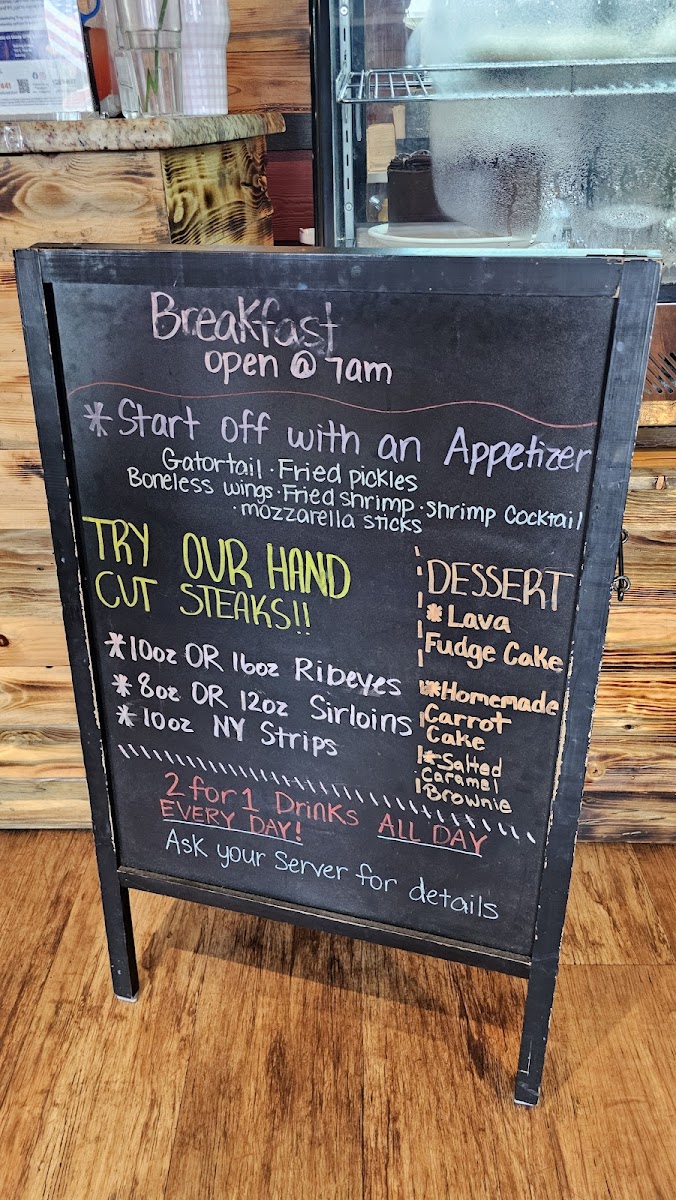 Breakfast
open @ 7am
* Start off with an Appetizer
Gatortail · Fried pickles
Boneless wings · Fried shrimp · shrimp Cocktail
· mozzarella sticks
TRY OUR HAND
CUT STEAKS!!
* 10oz OR 16oz Ribeyes
* 8oz OR 12oz Sirloins
* 10oz NY Strips
DESSERT
* Lava
Fudge Cake
* Homemade
Carrot
Cake
* Salted
Caramel
Brownie
2 for 1 Drinks ALL DAY
EVERY DAY!
Ask your Server for details